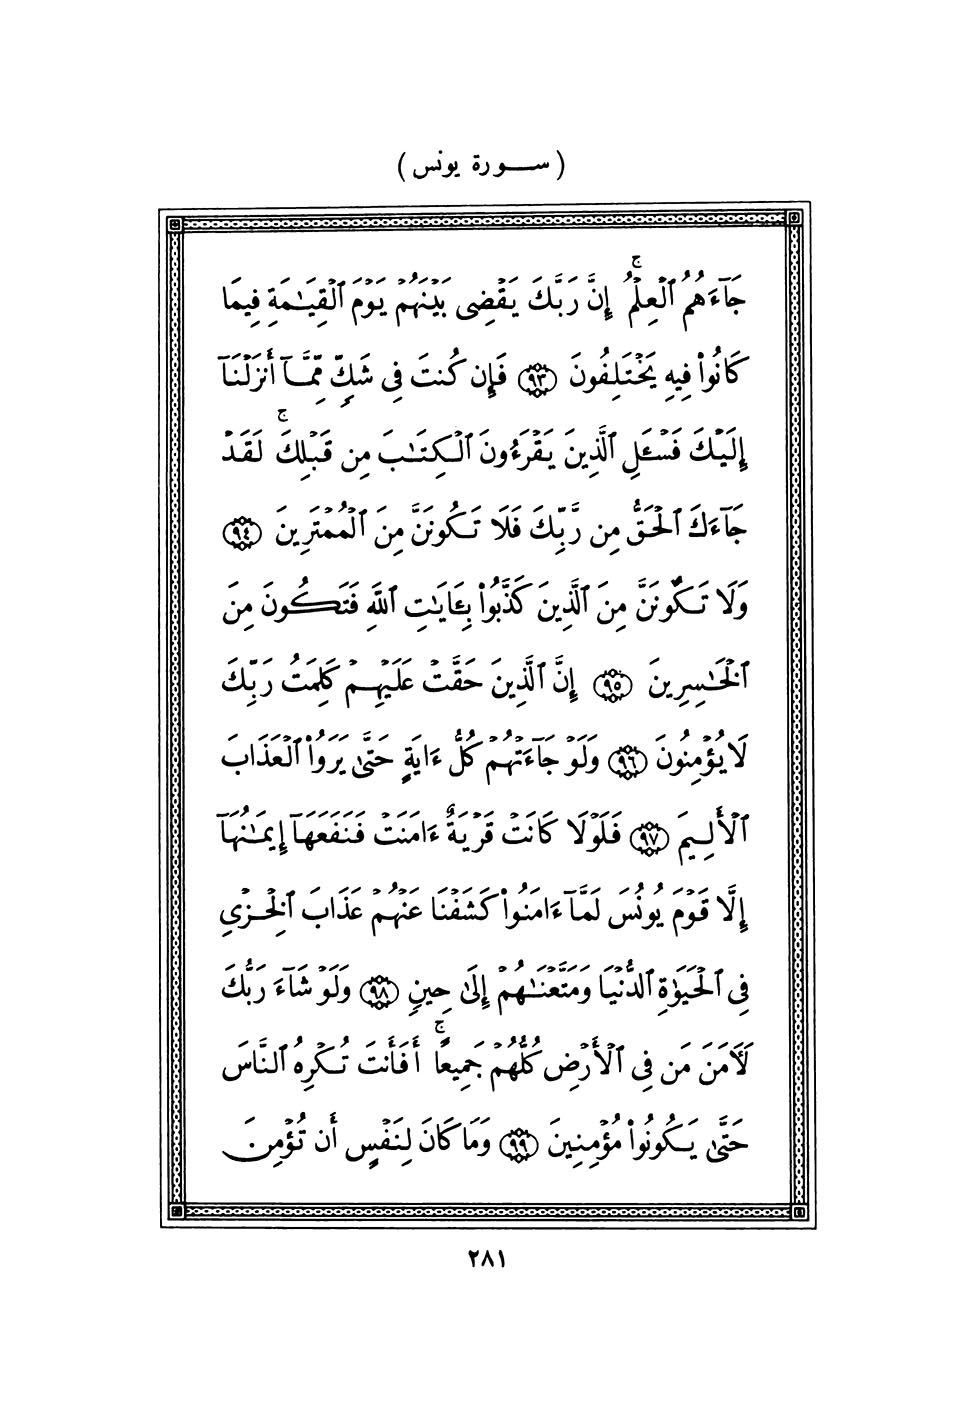 ( ســورة يونس )
جَآءَهُمُ ٱلْعِلْمُ ۚ إِنَّ رَبَّكَ يَقْضِى بَيْنَهُمْ يَوْمَ ٱلْقِيَـٰمَةِ فِيمَا
كَانُوا۟ فِيهِ يَخْتَلِفُونَ ﴿٩٣﴾ فَإِن كُنتَ فِى شَكٍّ مِّمَّآ أَنزَلْنَآ
إِلَيْكَ فَسْـَٔلِ ٱلَّذِينَ يَقْرَءُونَ ٱلْكِتَـٰبَ مِن قَبْلِكَ ۚ لَقَدْ
جَآءَكَ ٱلْحَقُّ مِن رَّبِّكَ فَلَا تَكُونَنَّ مِنَ ٱلْمُمْتَرِينَ ﴿٩٤﴾
وَلَا تَكُونَنَّ مِنَ ٱلَّذِينَ كَذَّبُوا۟ بِـَٔايَـٰتِ ٱللَّهِ فَتَكُونَ مِنَ
ٱلْخَـٰسِرِينَ ﴿٩٥﴾ إِنَّ ٱلَّذِينَ حَقَّتْ عَلَيْهِمْ كَلِمَتُ رَبِّكَ
لَا يُؤْمِنُونَ ﴿٩٦﴾ وَلَوْ جَآءَتْهُمْ كُلُّ ءَايَةٍ حَتَّىٰ يَرَوُا۟ ٱلْعَذَابَ
ٱلْأَلِيمَ ﴿٩٧﴾ فَلَوْلَا كَانَتْ قَرْيَةٌ ءَامَنَتْ فَنَفَعَهَآ إِيمَـٰنُهَآ
إِلَّا قَوْمَ يُونُسَ لَمَّآ ءَامَنُوا۟ كَشَفْنَا عَنْهُمْ عَذَابَ ٱلْخِزْىِ
فِى ٱلْحَيَوٰةِ ٱلدُّنْيَا وَمَتَّعْنَـٰهُمْ إِلَىٰ حِينٍ ﴿٩٨﴾ وَلَوْ شَآءَ رَبُّكَ
لَـَٔامَنَ مَن فِى ٱلْأَرْضِ كُلُّهُمْ جَمِيعًا ۚ أَفَأَنتَ تُكْرِهُ ٱلنَّاسَ
حَتَّىٰ يَكُونُوا۟ مُؤْمِنِينَ ﴿٩٩﴾ وَمَا كَانَ لِنَفْسٍ أَن تُؤْمِنَ
٢٨١